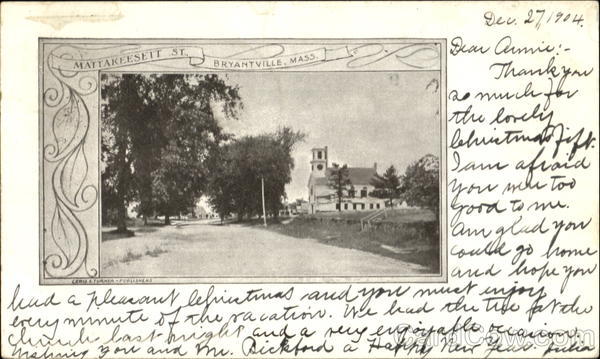 Dec. 27, 1904.
MATTAKEESETT ST.,
BRYANTVILLE, MASS.
Dear Annie:-
Thank you
so much for
the lovely
Christmas gift.
I am afraid
you were too
good to me.
Am glad you
could go home
and hope you
LEWIS & TURNER - PUBLISHERS
had a pleasant Christmas and you must enjoy
every minute of the vacation. We had the tree at the
church last night and a very enjoyable occasion.
Wishing you and Mr. Bickford a Happy New Year.
CardCow.com